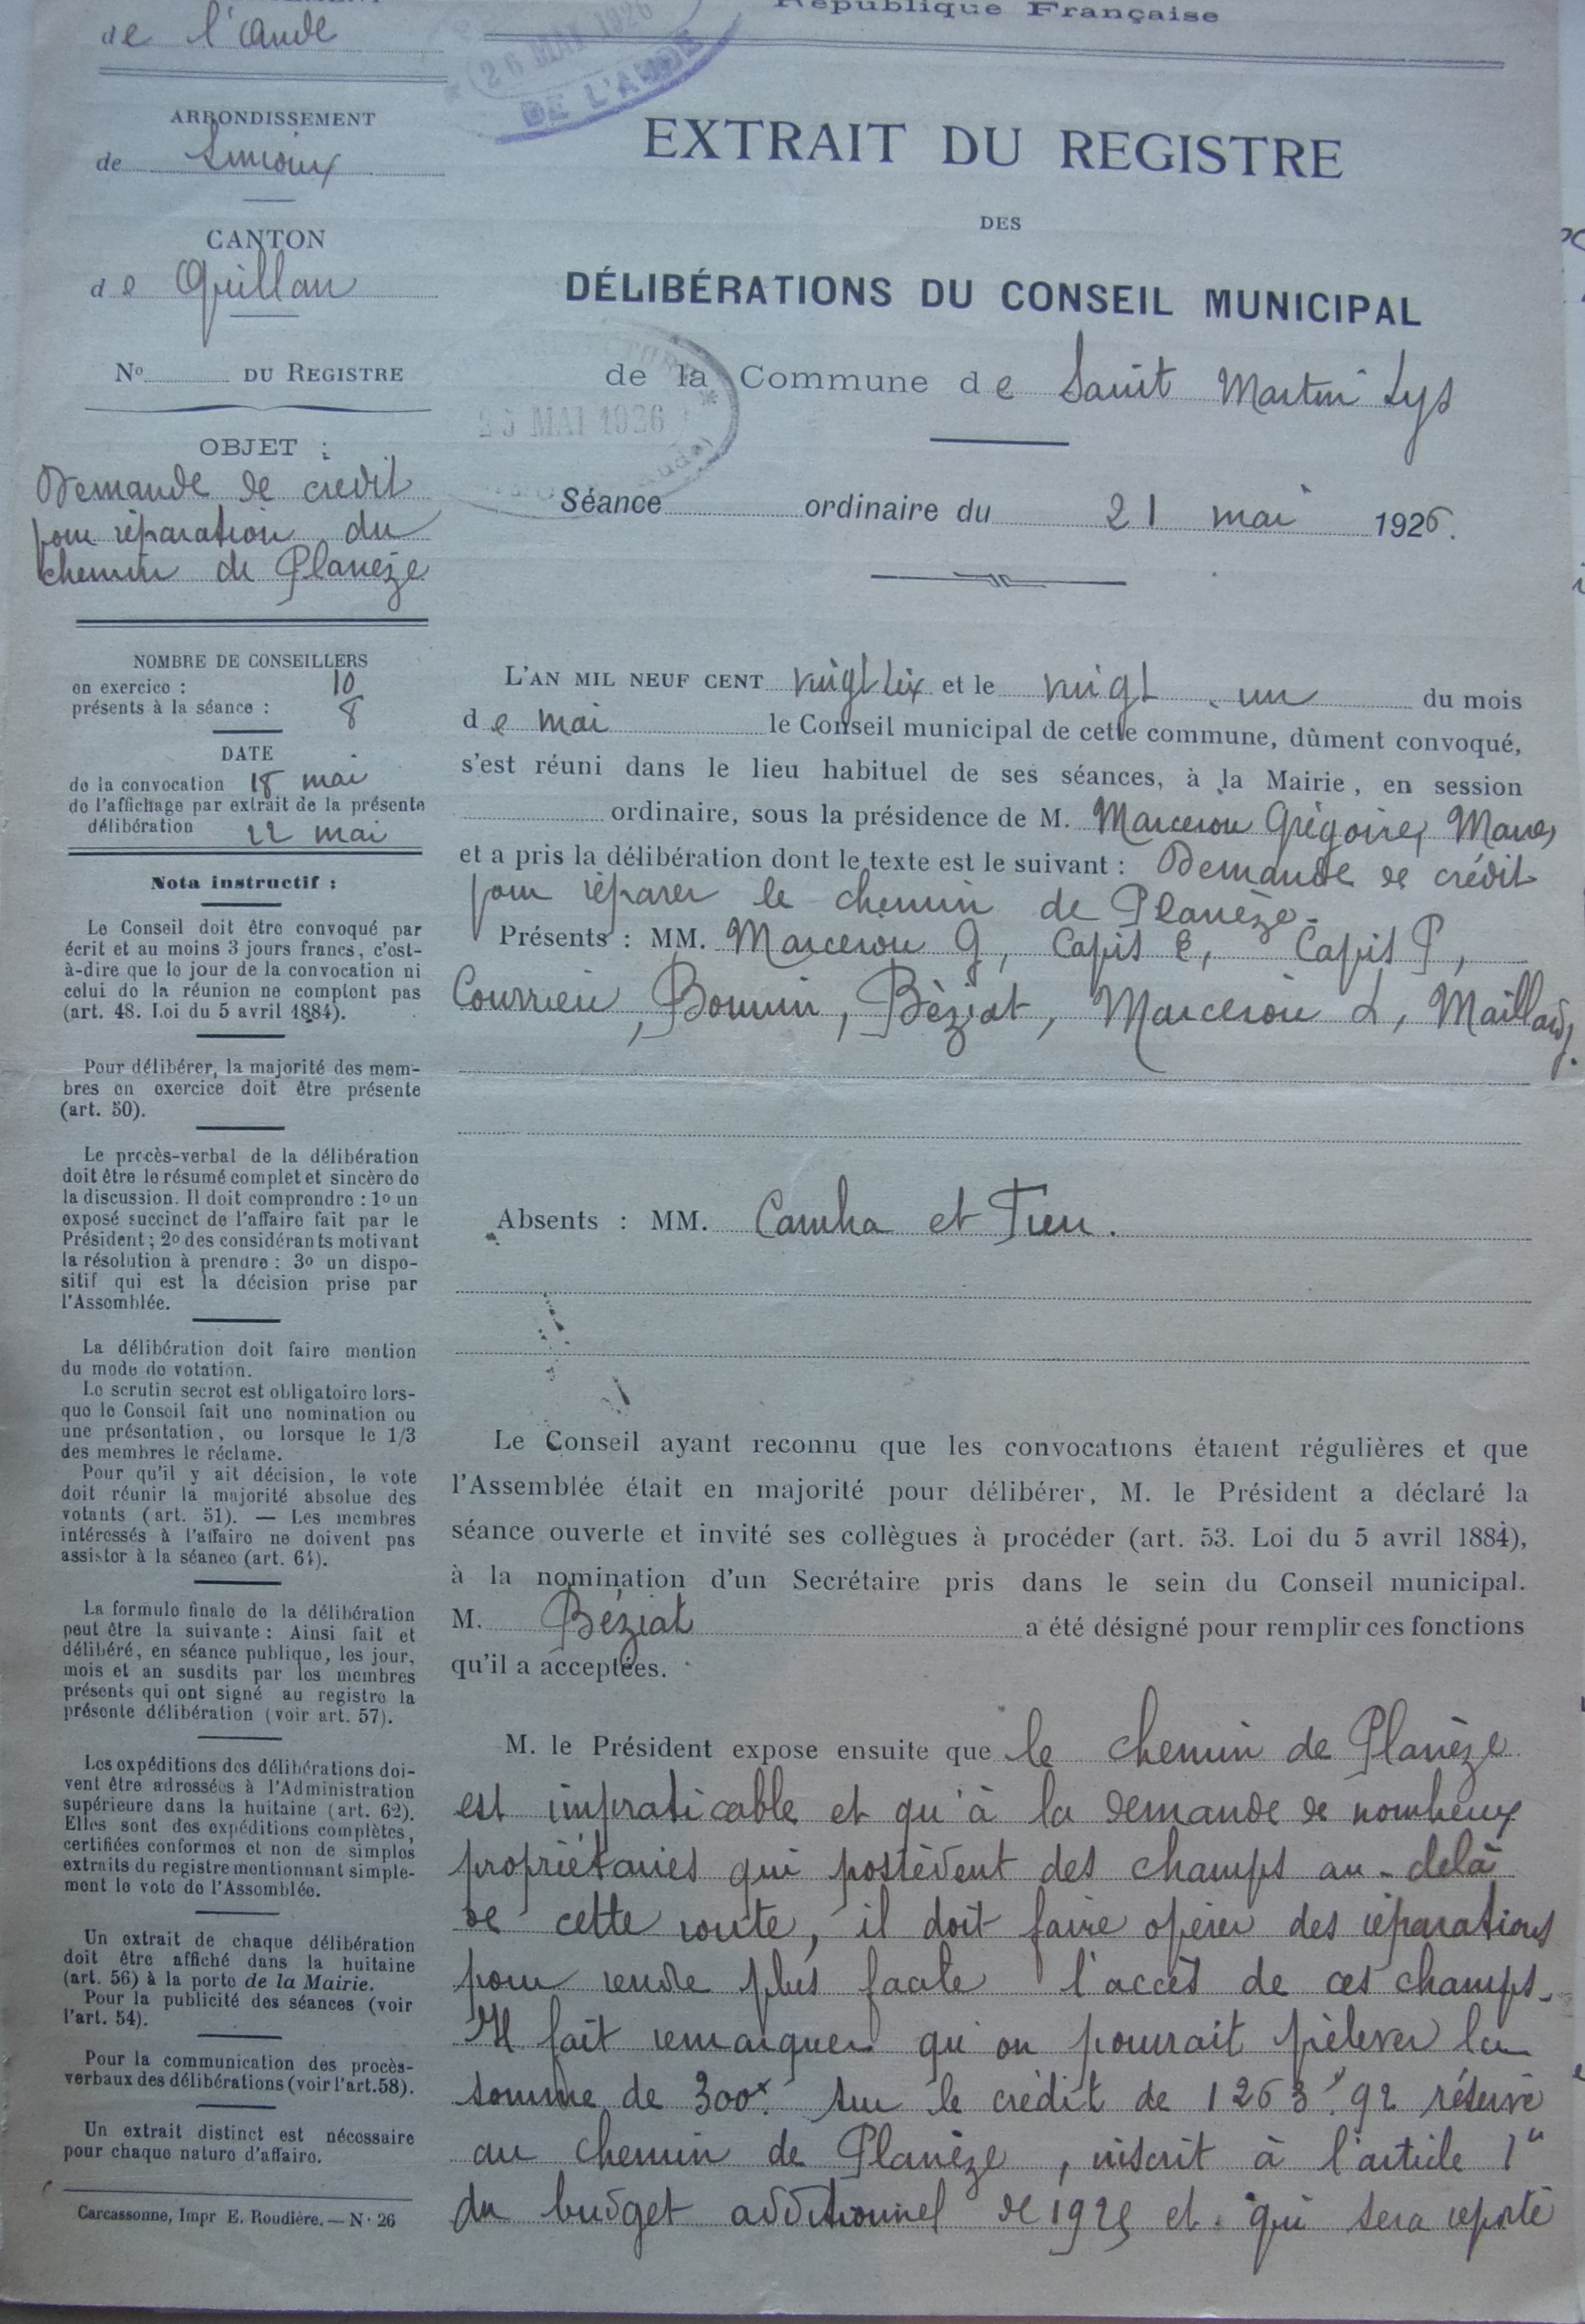 de l'Aude
République Française
26 MAI 1926
DE L'AUDE
ARRONDISSEMENT
de Limoux
CANTON
de Quillan
No DU REGISTRE
OBJET :
Demande de credit
pour réparation du
chemin de Planèze
NOMBRE DE CONSEILLERS
en exercice : 10
présents à la séance : 8
DATE
de la convocation 18 mai
de l'affichage par extrait de la présente
délibération 22 mai
Nota instructif :
Le Conseil doit être convoqué par
écrit et au moins 3 jours francs, c'est-
à-dire que le jour de la convocation ni
celui de la réunion ne comptent pas
(art. 48. Loi du 5 avril 1884).
Pour délibérer, la majorité des mem-
bres en exercice doit être présente
(art. 50).
Le procès-verbal de la délibération
doit être le résumé complet et sincère de
la discussion. Il doit comprendre : 1o un
exposé succinct de l'affaire fait par le
Président ; 2o des considérants motivant
la résolution à prendre : 3o un dispo-
sitif qui est la décision prise par
l'Assemblée.
La délibération doit faire mention
du mode de votation.
Le scrutin secret est obligatoire lors-
que le Conseil fait une nomination ou
une présentation, ou lorsque le 1/3
des membres le réclame.
Pour qu'il y ait décision, le vote
doit réunir la majorité absolue des
votants (art. 51). — Les membres
intéressés à l'affaire ne doivent pas
assister à la séance (art. 64).
La formule finale de la délibération
peut être la suivante : Ainsi fait et
délibéré, en séance publique, les jour,
mois et an susdits par les membres
présents qui ont signé au registre la
présente délibération (voir art. 57).
Les expéditions des délibérations doi-
vent être adressées à l'Administration
supérieure dans la huitaine (art. 62).
Elles sont des expéditions complètes,
certifiées conformes et non de simples
extraits du registre mentionnant simple-
ment le vote de l'Assemblée.
Un extrait de chaque délibération
doit être affiché dans la huitaine
(art. 56) à la porte de la Mairie.
Pour la publicité des séances (voir
l'art. 54).
Pour la communication des procès-
verbaux des délibérations (voir l'art. 58).
Un extrait distinct est nécessaire
pour chaque nature d'affaire.
Carcassonne, Impr E. Roudière. — N· 26
EXTRAIT DU REGISTRE
DES
DÉLIBÉRATIONS DU CONSEIL MUNICIPAL
de la Commune de Saint Martin Lys
25 MAI 1926
Séance ordinaire du 21 mai 1926.
L'AN MIL NEUF CENT vingt six et le vingt un du mois
de mai le Conseil municipal de cette commune, dûment convoqué,
s'est réuni dans le lieu habituel de ses séances, à la Mairie, en session
ordinaire, sous la présidence de M. Marcerou Grégoire, Maire,
et a pris la délibération dont le texte est le suivant : Demande de crédit
pour réparer le chemin de Planèze.
Présents : MM. Marcerou G, Capis E, Capis P,
Courrieu, Bonnin, Bèziat, Marcerou L, Maillard.
Absents : MM. et
Le Conseil ayant reconnu que les convocations étaient régulières et que
l'Assemblée était en majorité pour délibérer, M. le Président a déclaré la
séance ouverte et invité ses collègues à procéder (art. 53. Loi du 5 avril 1884),
à la nomination d'un Secrétaire pris dans le sein du Conseil municipal.
M. Béziat a été désigné pour remplir ces fonctions
qu'il a acceptées.
M. le Président expose ensuite que le chemin de Planèze
est impraticable et qu'à la demande de nombreux
propriétaires qui possèdent des champs au-delà
de cette route, il doit faire opérer des réparations
pour rendre plus facile l'accès de ces champs.
Il fait remarquer qu'on pourrait prélever la
somme de 300f. sur le crédit de 1263f.92 réservé
au chemin de Planèze, inscrit à l'article 1er
du budget additionnel de 1925 et qui sera reporté